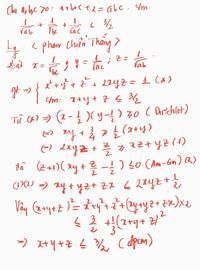 Cho a,b,c >0: a+b+c+2=abc. Cm:
1/√ab + 1/√bc + 1/√ac ≤ 3/2
Lg (phan Chiến Thắng)
Đặt x = 1/√bc ; y = 1/√ca ; z = 1/√ab
gt ⇒ { x²+y²+z²+2xyz = 1 (*)
Cm: x+y+z ≤ 3/2
Từ (*) ⇒ (x-1/2)(y-1/2) ≥ 0 (Dirichlet)
⇔ xy + 1/4 ≥ 1/2(x+y)
⇔ 2xyz + z/2 ≥ xz + yz (1)
(z+1)(xy + z/2 - 1/2) ≤ 0 (Am-Gm) (2)
(1)(2) ⇒ xy+yz+zx ≤ 2xyz + 1/2
Vậy (x+y+z)² = x²+y²+z²+(xy+yz+zx)×2
≤ 3/2 + 1/3(x+y+z)²
⇒ x+y+z ≤ 3/2 (đpcm)